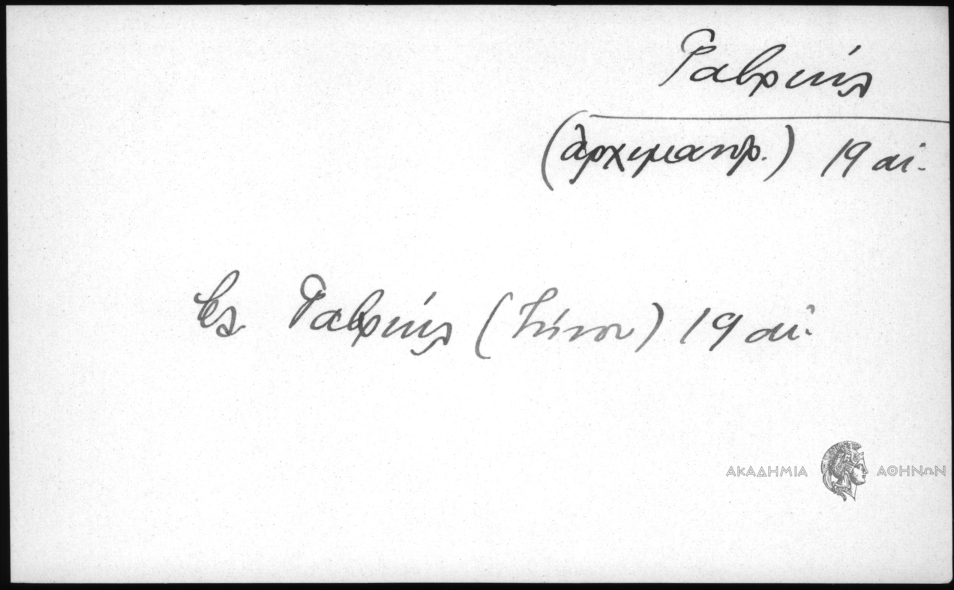 Γαβριήλ
(ἀρχιμανδρ.) 19 αἰ.
βλ. Γαβριήλ (Τήνου) 19 αἰ.
ΑΚΑΔΗΜΙΑ ΑΘΗΝΩΝ